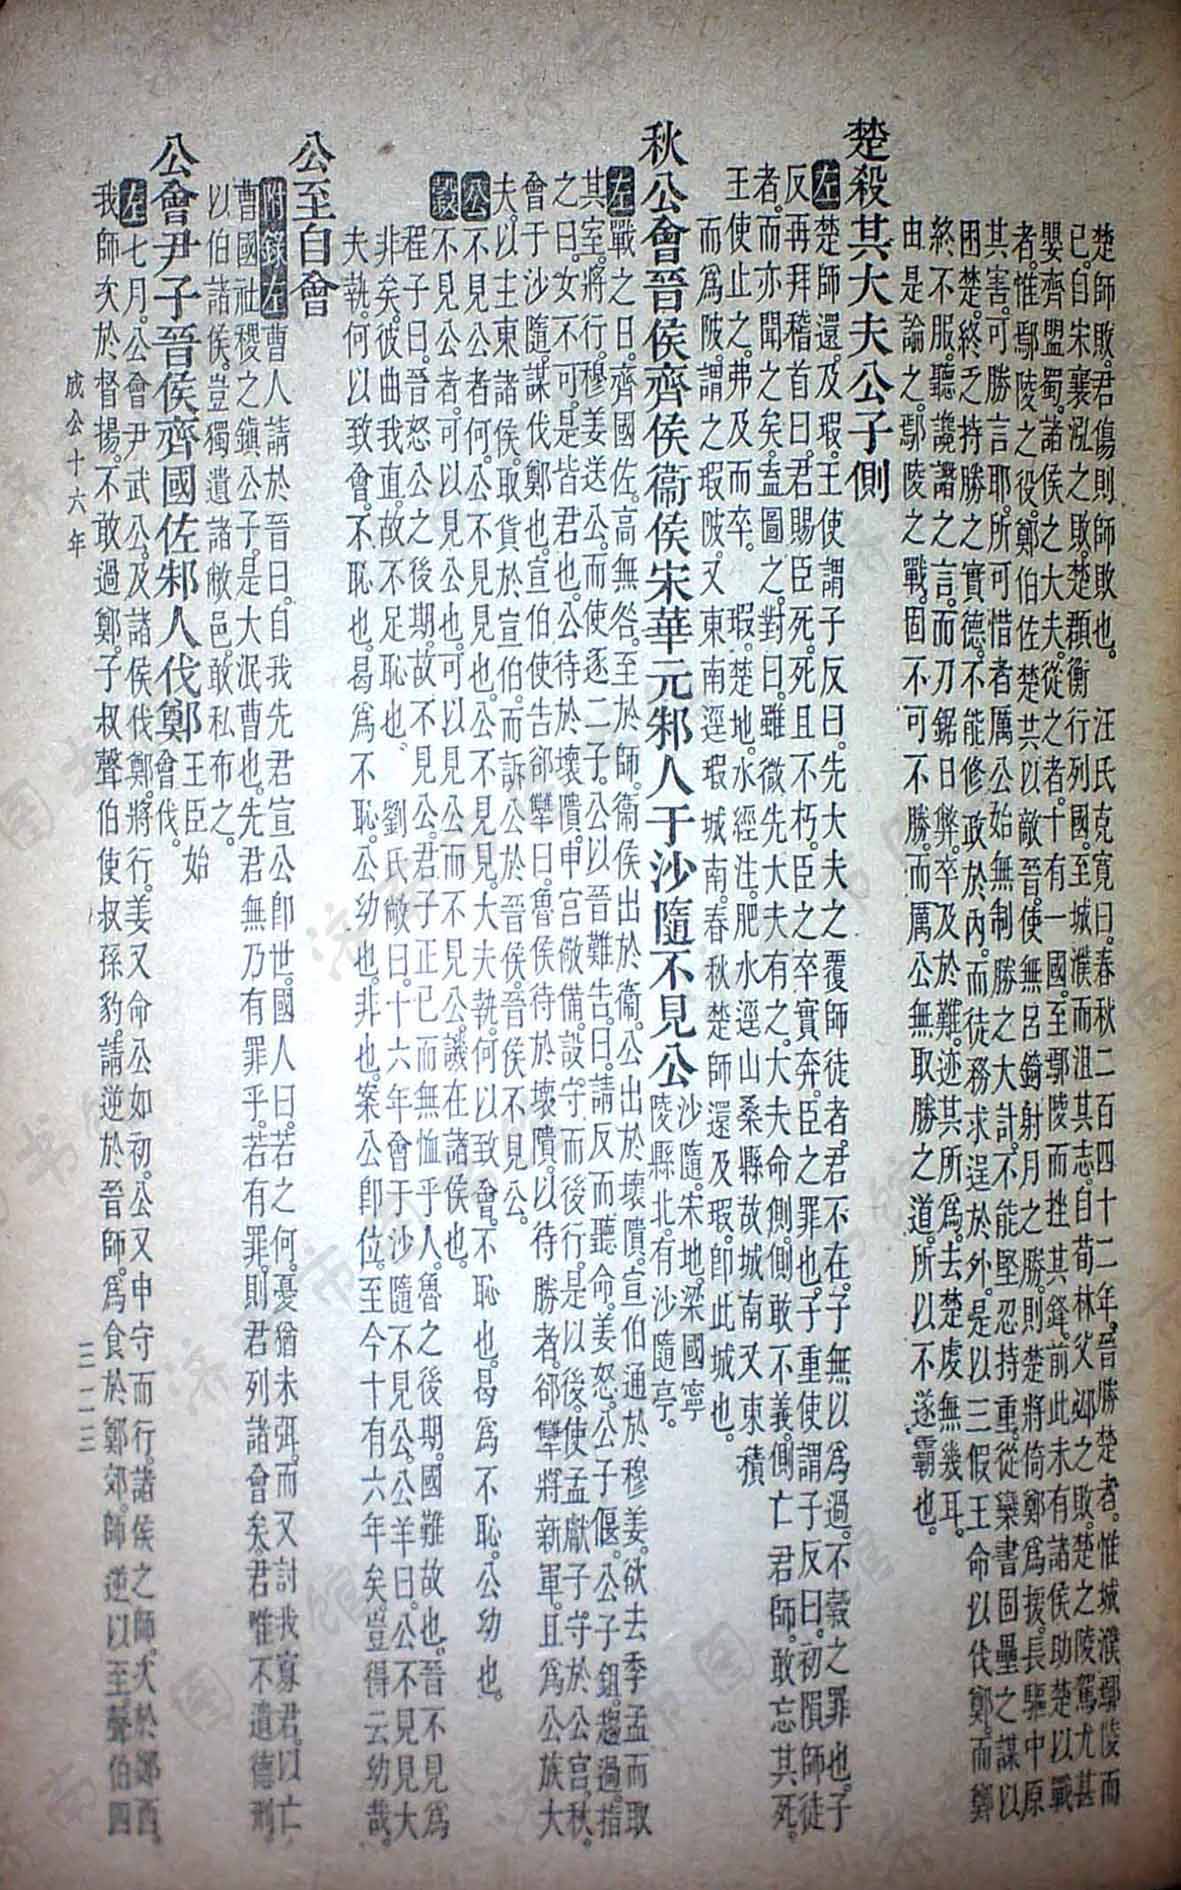 楚師敗。君傷則師敗也。　汪氏克寬曰。春秋二百四十二年。晉勝楚者。惟城濮鄢陵而
已。自宋襄泓之敗。楚頵衡行列國。至城濮而沮其志。自荀林父邲之敗。楚之陵駕尤甚
嬰齊盟蜀。諸侯之大夫。從之者。十有一國。至鄢陵而挫其鋒。前此未有諸侯助楚以戰
者。惟鄢陵之役。鄭伯佐楚共以敵晉。使無呂錡射月之勝。則楚將倚鄭爲援。長驅中原
其害。可勝言耶。所可惜者。厲公始無制勝之大計。不能堅忍持重。從欒書固壘之謀以
困楚。終乏持勝之實德。不能修政於內。而徒務求逞於外。是以三假王命以伐鄭。而鄭
終不服。聽讒譖之言。而刀鋸日弊。卒及於難。迹其所爲。去楚虔無幾耳。
由是論之。鄢陵之戰。固不可不勝。而厲公無取勝之道。所以不遂霸也。
楚殺其大夫公子側
左楚師還。及瑕。王使謂子反曰。先大夫之覆師徒者。君不在。子無以爲過。不穀之罪也。子
反再拜稽首曰。君賜臣死。死且不朽。臣之卒實奔。臣之罪也。子重使謂子反曰。初隕師徒
者。而亦聞之矣。盍圖之。對曰。雖微先大夫有之。大夫命側。側敢不義。側亡君師。敢忘其死。
王使止之。弗及而卒。　瑕。楚地。水經注。肥水逕山桑縣故城南又東積
而爲陂。謂之瑕陂。又東南逕瑕城南。春秋楚師還及瑕。卽此城也。
秋公會晉侯齊侯衞侯宋華元邾人于沙隨不見公沙隨。宋地。梁國寧
陵縣北。有沙隨亭。
左戰之日。齊國佐。高無咎。至於師。衞侯出於衞。公出於壞隤。宣伯通於穆姜。欲去季孟而取
其室。將行。穆姜送公。而使逐二子。公以晉難告。曰。請反而聽命。姜怒。公子偃。公子鉏。趨過。指
之曰。女不可。是皆君也。公待於壞隤。申宮儆備。設守而後行。是以後。使孟獻子守於公宮。秋。
會于沙隨。謀伐鄭也。宣伯使告郤犨曰。魯侯待於壞隤。以待勝者。郤犨將新軍。且爲公族大
夫。以主東諸侯。取貨於宣伯。而訴公於晉侯。晉侯不見公。
公不見公者何。公不見見也。公不見見。大夫執。何以致會。不恥也。曷爲不恥。公幼也。
穀不見公者。可以見公也。可以見公而不見公。譏在諸侯也。
程子曰。晉怒公之後期。故不見公。君子正己而無恤乎人。魯之後期。國難故也。晉不見爲
非矣。彼曲我直。故不足恥也。　劉氏敞曰。十六年會于沙隨不見公。公羊曰。公不見見大
夫執。何以致會。不恥也。曷爲不恥。公幼也。非也。案公卽位。至今十有六年矣。豈得云幼哉。
公至自會
附錄左曹人請於晉曰。自我先君宣公卽世。國人曰。若之何。憂猶未弭。而又討我寡君。以亡
曹國社稷之鎮公子。是大泯曹也。先君無乃有罪乎。若有罪。則君列諸會矣。君惟不遺德刑。
以伯諸侯。豈獨遺諸敝邑。敢私布之。
公會尹子晉侯齊國佐邾人伐鄭王臣始
會伐。
左七月。公會尹武公。及諸侯伐鄭。將行。姜又命公如初。公又申守而行。諸侯之師。次於鄭西。
我師次於督揚。不敢過鄭。子叔聲伯使叔孫豹。請逆於晉師。爲食於鄭郊。師逆以至。聲伯四
成公十六年
三二三